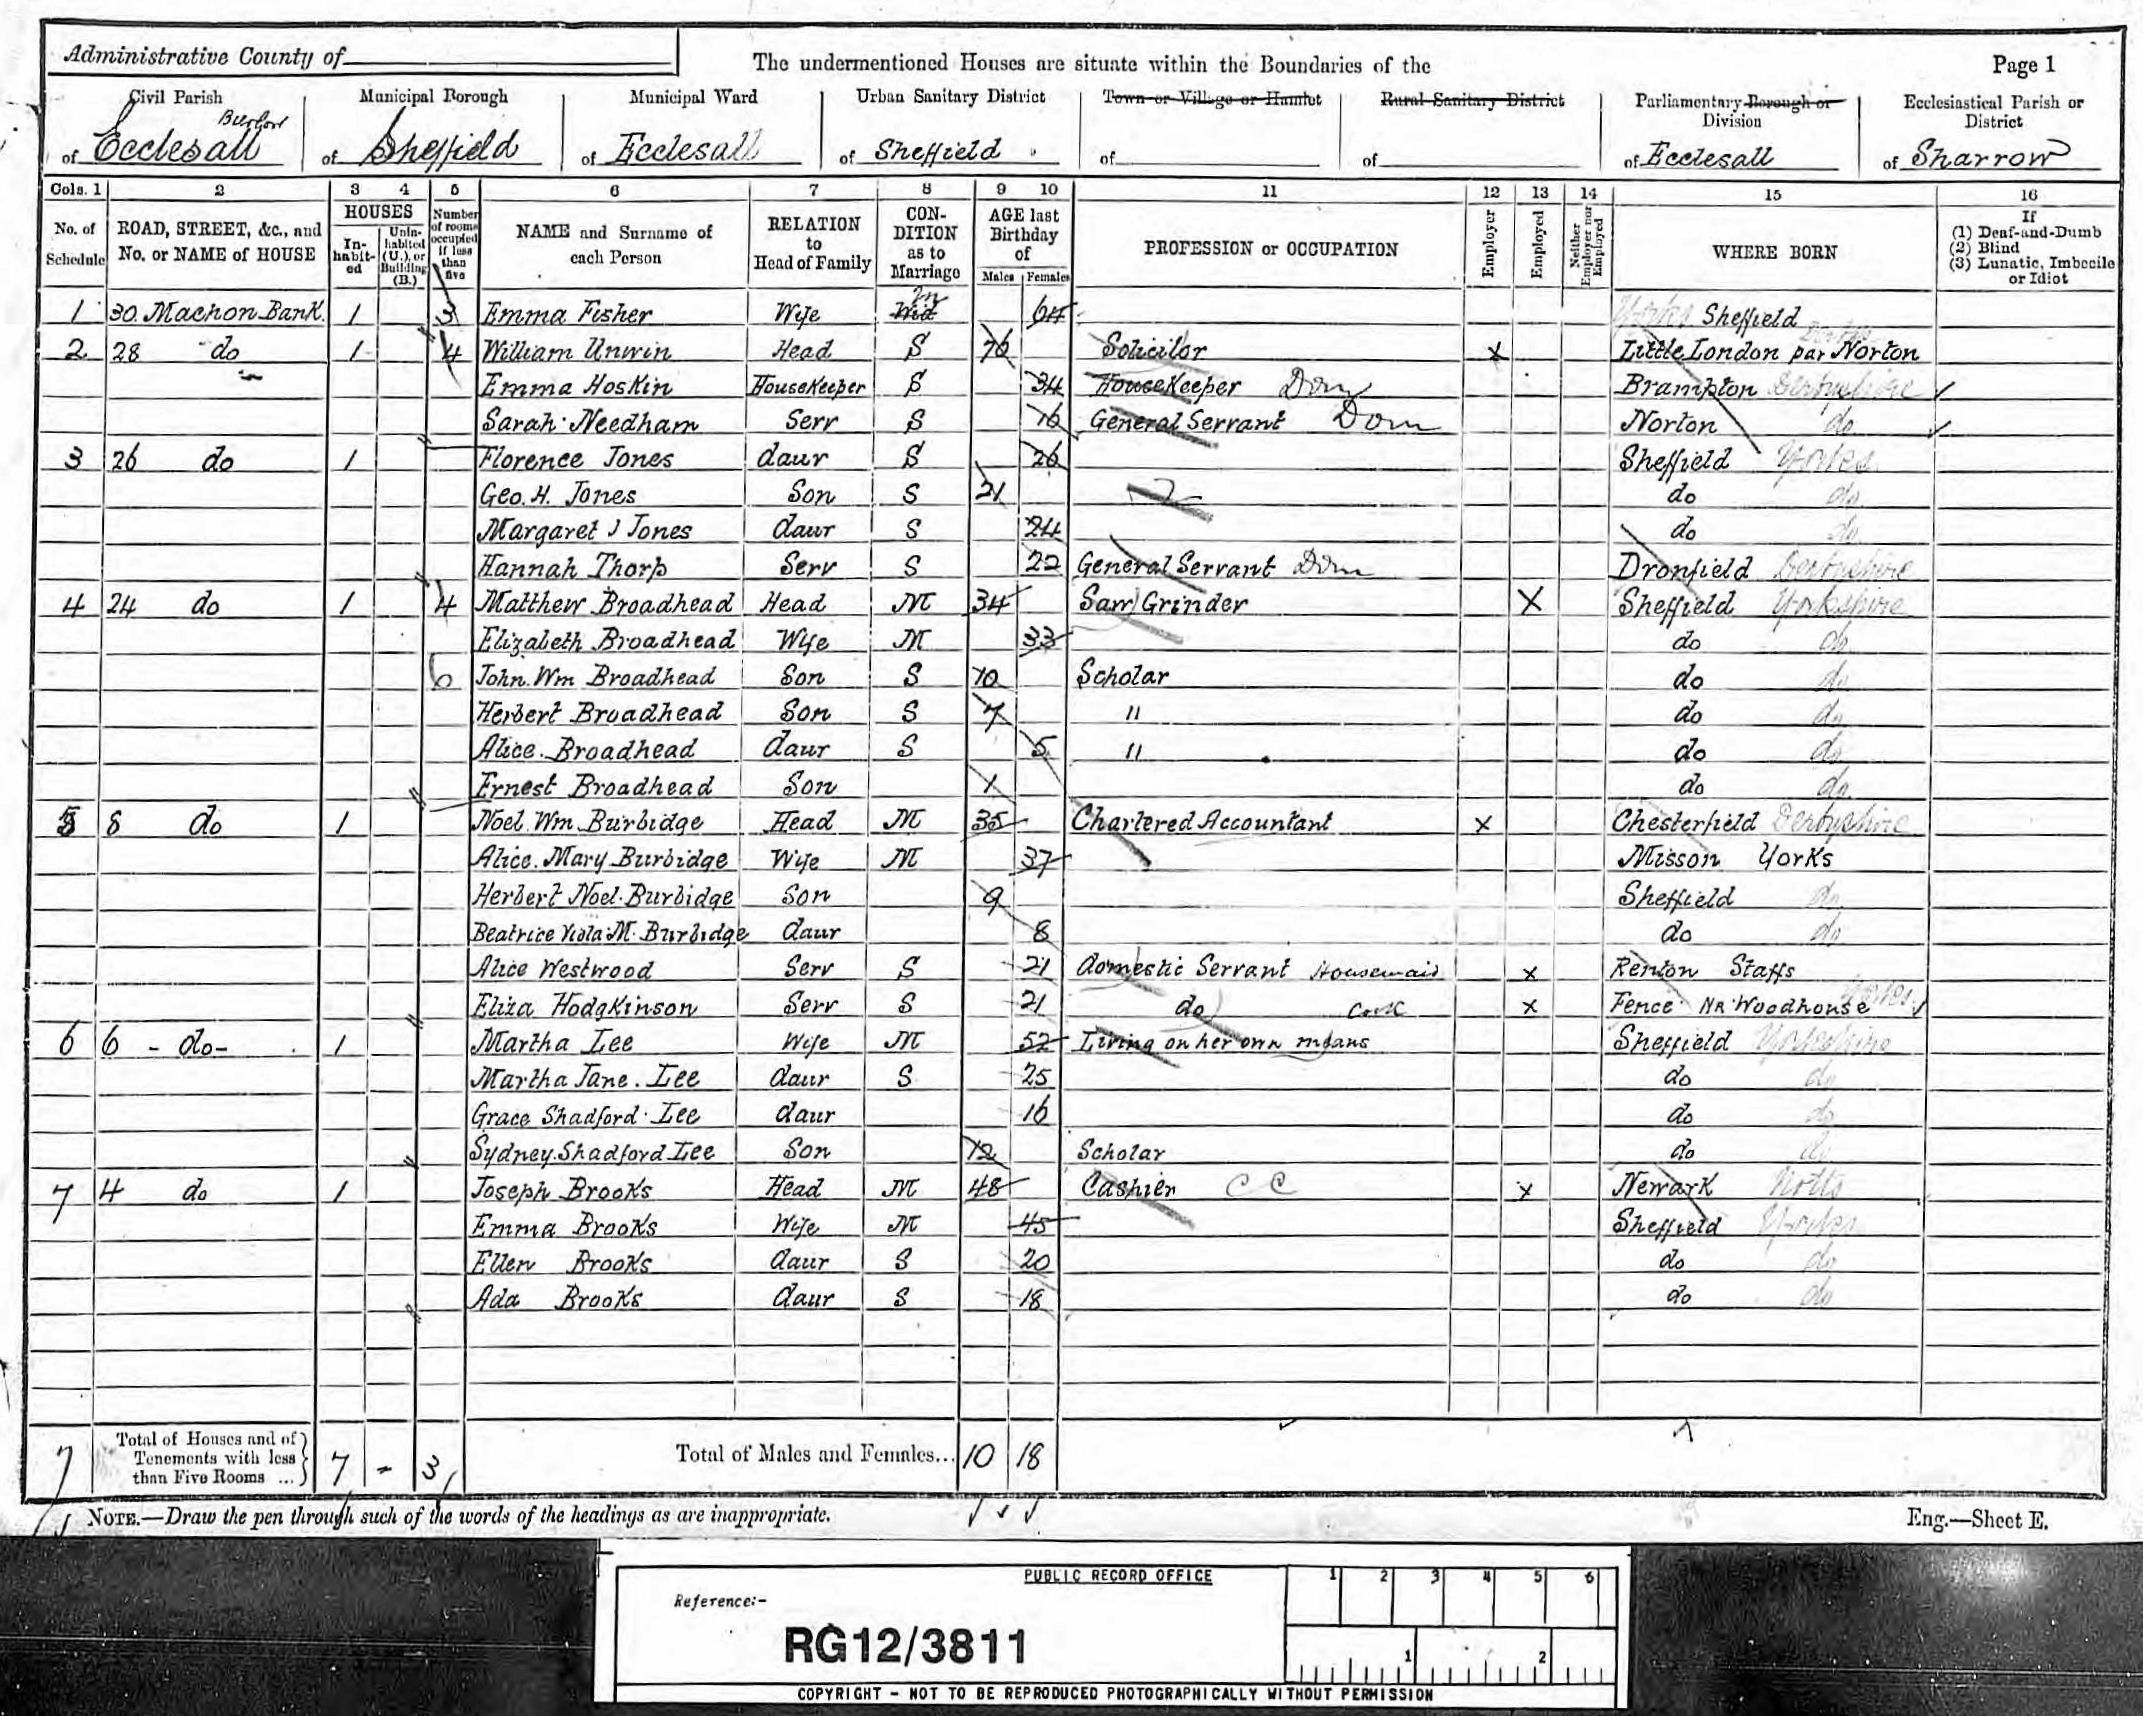 Administrative County of
The undermentioned Houses are situate within the Boundaries of the
Page 1
Civil Parish
Municipal Borough
Municipal Ward
Urban Sanitary District
Town or Village or Hamlet
Rural Sanitary District
Parliamentary Borough or Division
Ecclesiastical Parish or District
of Ecclesall
of Sheffield
of Ecclesall
of Sheffield
of
of
of Ecclesall
of Sharrow
Cols. 1 2 3 4 5 6 7 8 9 10 11 12 13 14 15 16
No. of Schedule
ROAD, STREET, &c., and No. or NAME of HOUSE
HOUSES
In-habit-ed
Unin-habited (U.), or Building (B.)
Number of rooms occupied if less than five
NAME and Surname of each Person
RELATION to Head of Family
CON-DITION as to Marriage
AGE last Birthday of
Males Females
PROFESSION or OCCUPATION
Employer
Employed
Neither Employer nor Employed
WHERE BORN
If
(1) Deaf-and-Dumb
(2) Blind
(3) Lunatic, Imbecile or Idiot
1 30. Machon Bank. 1 3 Emma Fisher Wife Wid m 64 Yorks Sheffield
2 28 do 1 4 William Unwin Head S 76 Solicitor X Little London par Norton
Emma Hoskin HouseKeeper S 34 HouseKeeper Dom Brampton Derbyshire
Sarah Needham Serv S 16 General Servant Dom Norton do
3 26 do 1 Florence Jones daur S 26 Sheffield Yorks
Geo. H. Jones Son S 21 do do
Margaret J Jones daur S 24 do do
Hannah Thorp Serv S 22 General Servant Dom Dronfield Derbyshire
4 24 do 1 4 Matthew Broadhead Head M 34 Saw Grinder X Sheffield Yorkshire
Elizabeth Broadhead Wife M 33 do do
6 John Wm Broadhead Son S 10 Scholar do do
Herbert Broadhead Son S 7 " do do
Alice Broadhead daur S 5 " do do
Ernest Broadhead Son 1 do do
5 8 do 1 Noel Wm Burbidge Head M 35 Chartered Accountant X Chesterfield Derbyshire
Alice Mary Burbidge Wife M 37 Misson Yorks
Herbert Noel Burbidge Son 9 Sheffield do
Beatrice Viola M. Burbidge daur 8 do do
Alice Westwood Serv S 21 domestic Servant Housemaid X Renton Staffs
Eliza Hodgkinson Serv S 21 do Cook X Fence Nr Woodhouse Yorks
6 6 - do - 1 Martha Lee Wife M 52 Living on her own means Sheffield Yorkshire
Martha Jane Lee daur S 25 do do
Grace Shadford Lee daur 16 do do
Sydney Shadford Lee Son 12 Scholar do do
7 4 do 1 Joseph Brooks Head M 48 Cashier C C X Newark Notts
Emma Brooks Wife M 45 Sheffield Yorks
Ellen Brooks daur S 20 do do
Ada Brooks daur S 18 do do
7 Total of Houses and of Tenements with less than Five Rooms ... 7 - 3 Total of Males and Females... 10 18
NOTE.—Draw the pen through such of the words of the headings as are inappropriate.
Eng.—Sheet E.
PUBLIC RECORD OFFICE
1 2 3 4 5 6
Reference:-
RG12/3811
1 2
COPYRIGHT - NOT TO BE REPRODUCED PHOTOGRAPHICALLY WITHOUT PERMISSION